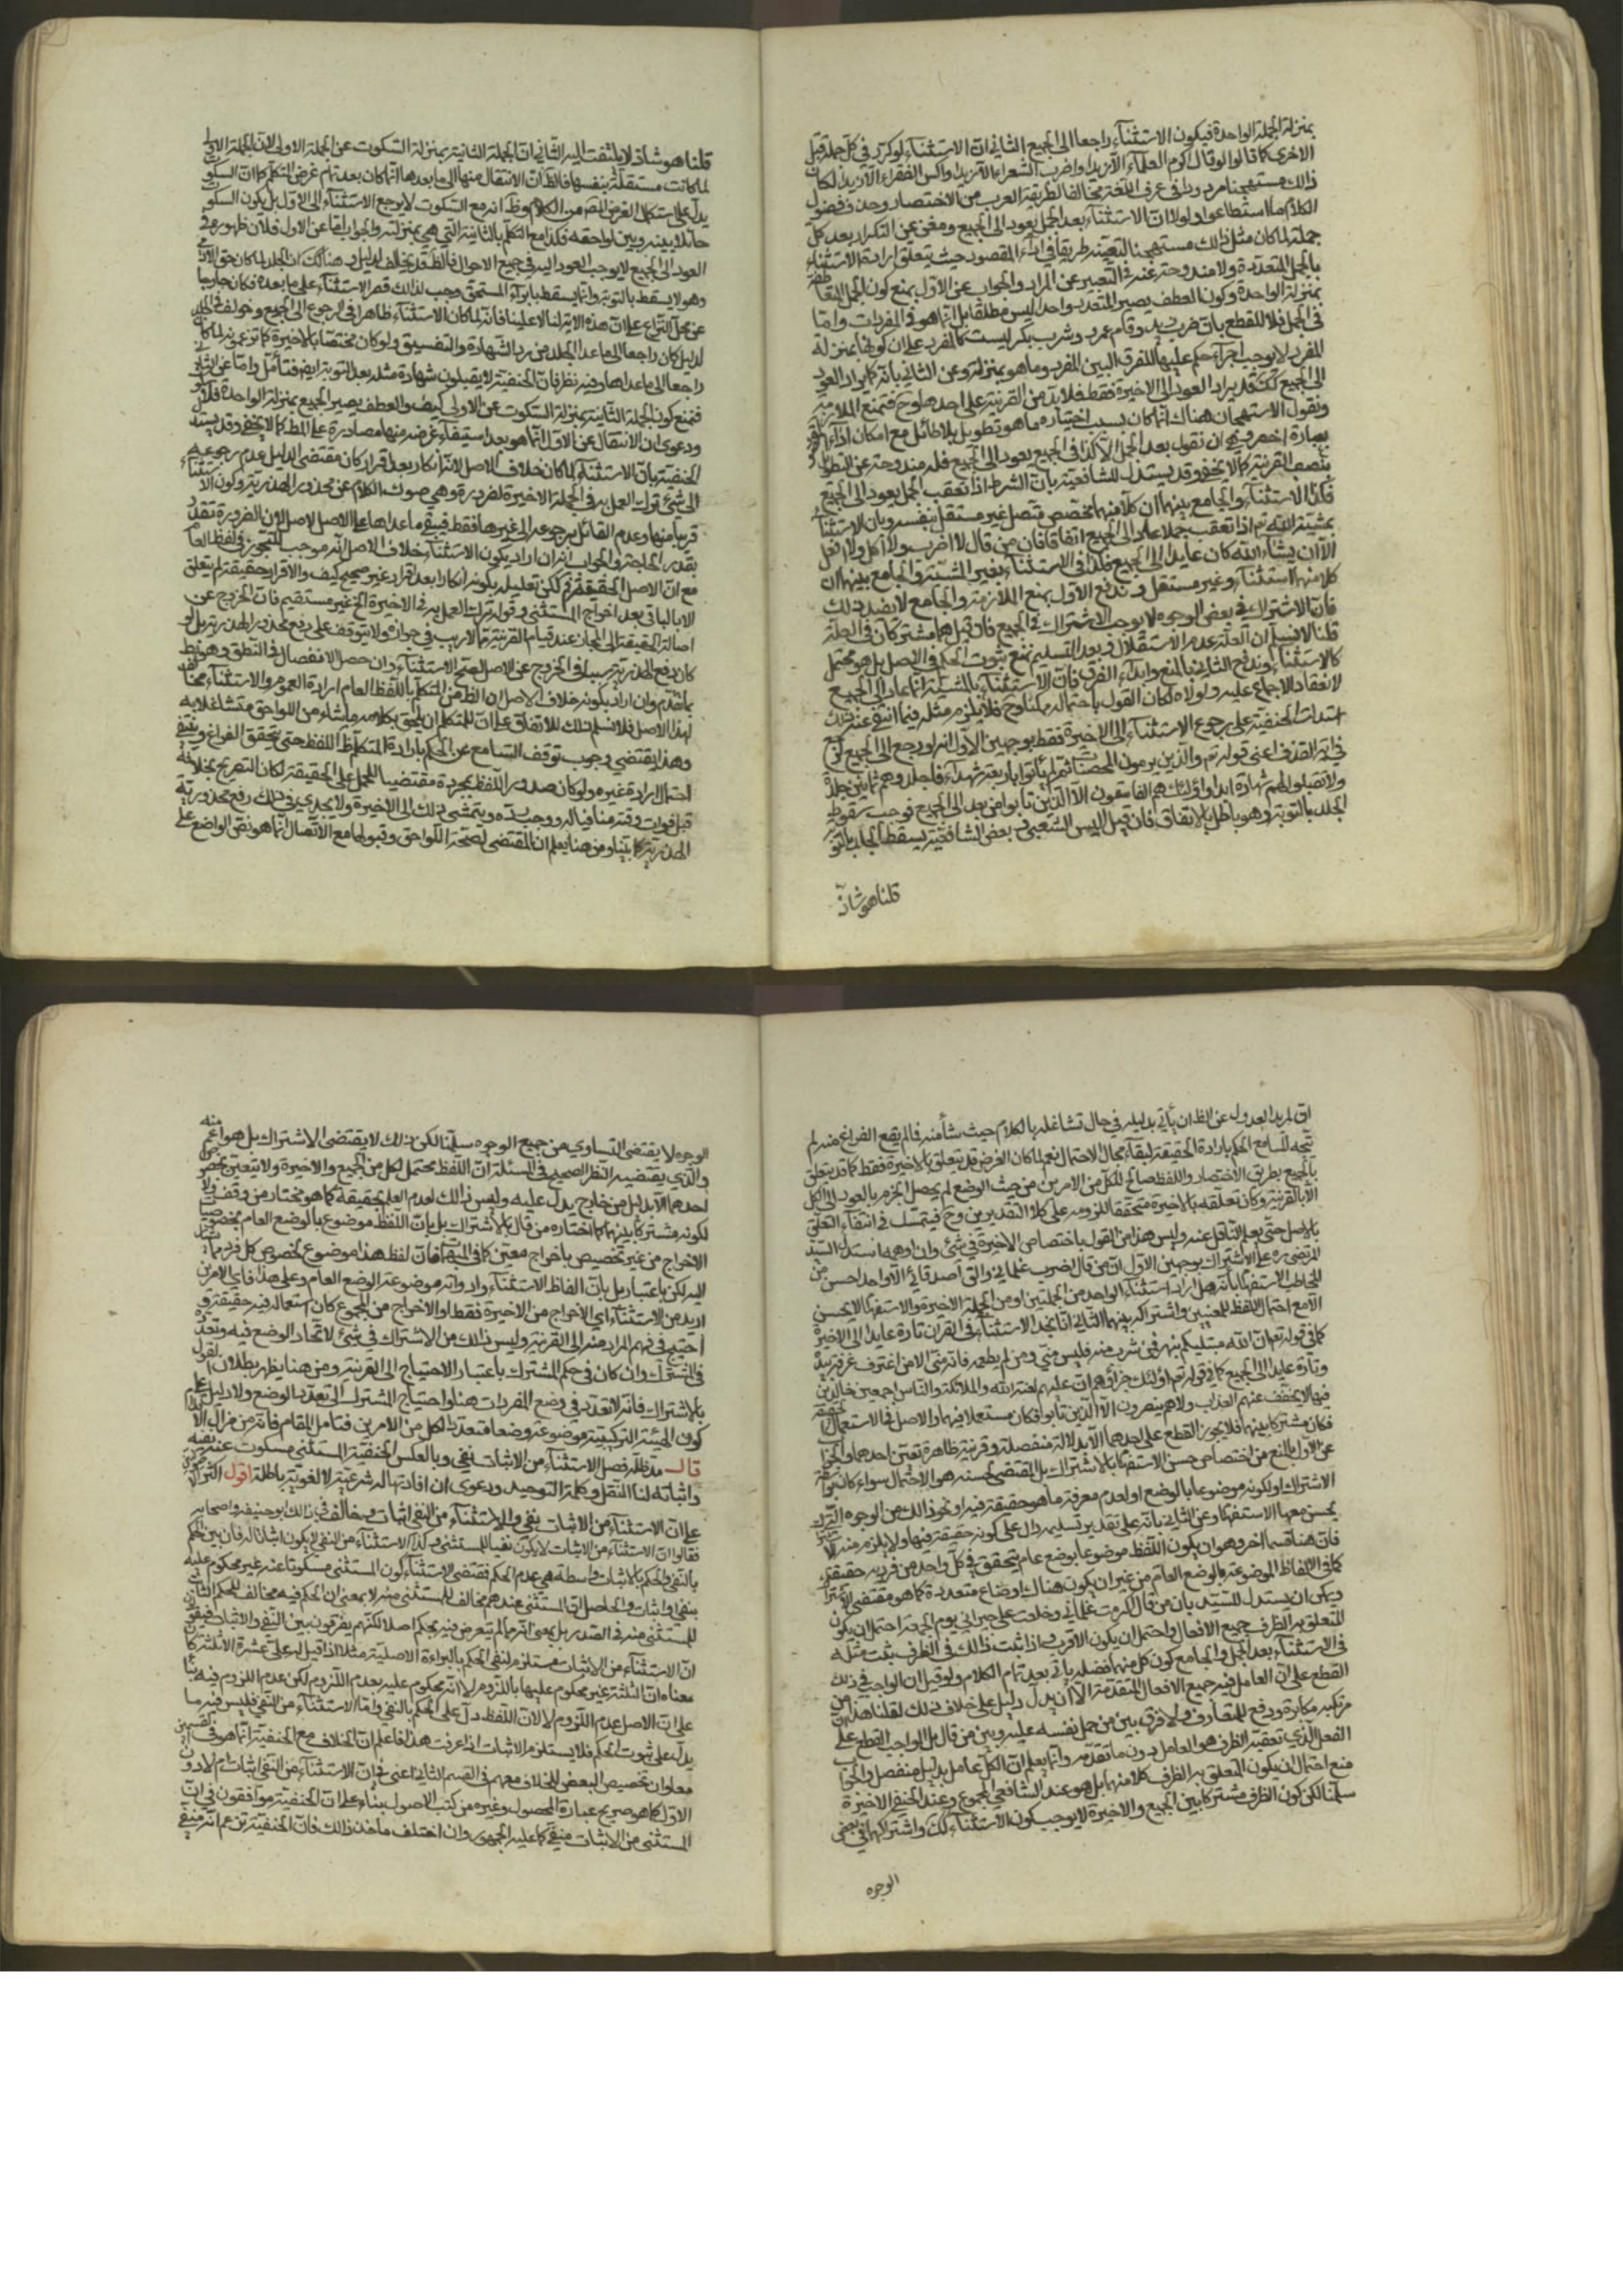 بمنزلة الجملة الواحدة فيكون الاستثناء راجعا الى الجميع الثاني ان الاستثناء لو كرر في كل جملة قبل
الاخرى كما قالوا لو قال اكرم العلماء الا زيدا واضرب الشعراء الا زيدا واكس الفقراء الا زيدا لكان
ذلك مستهجنا مردودا في عرف اللغة مخالفا لطريقة العرب من الاختصار وحذف فضول
الكلام ما استطاعوا ولولا ان الاستثناء بعد الجمل يعود الى الجميع ومغن عن التكرار بعد كل
جملة لما كان مثل ذلك مستهجنا لتعينه طريقا في اداء المقصود حيث تتعلق ارادة الاستثناء
بالجمل المتعددة ولا مندوحة عنه في التعبير عن المراد والجواب عن الاول بمنع كون الجمل المتعاطفة
بمنزلة الواحدة وكون العطف يصير المتعدد واحدا ليس مطلقا بل انما هو في المفردات واما
في الجمل فلا للقطع بان ضرب زيد وقام عمرو وشرب بكر ليست كالمفرد على ان كونها بمنزلة
المفرد لا يوجب اجراء حكمه عليها للفرق البين بين المفرد وما هو بمنزلته وعن الثاني بانه كما يراد العود
الى الجميع كك قد يراد العود الى الاخيرة فقط فلا بد من القرينة على احدهما وح فتمنع الملازمة
ونقول الاستهجان هناك انما كان بسبب اختياره ما هو تطويل بلا طائل مع امكان اداء المقصود
بعبارة اخصر وهي ان نقول بعد الجمل الا كذا في الجميع يعود الى الجميع فله مندوحة عن التطويل
بنصب القرينة كما لا يخفى وقد يستدل للشافعية بان الشرط اذا تعقب الجمل يعود الى الجميع
فكذا الاستثناء والجامع بينهما ان كلا منهما مخصص متصل غير مستقل بنفسه وبان الاستثناء
بمشية الله تع اذا تعقب جملا عاد الى الجميع اتفاقا فان من قال لا اضرب ولا اكل ولا افعل
الا ان يشاء الله كان عايدا الى الجميع فكذا في الاستثناء بغير المشية والجامع بينهما ان
كلا منهما استثناء وغير مستقل وندفع الاول بمنع الملازمة والجامع لا يفيد ذلك
فان الاشتراك في بعض الوجوه لا يوجب الاشتراك في الجميع فان قيل هما مشتركان في العلة
قلنا لا نسلم ان العلة عدم الاستقلال وبعد التسليم نمنع ثبوت الحكم في الاصل بل هو محتمل
كالاستثناء وندفع الثاني بالمنع وابداء الفرق فان الاستثناء بالمشية انما عاد الى الجميع
لانعقاد الاجماع عليه ولولاه لكان القول باحتماله ممكنا وح فلا يلزم مثله فيما انتفى عنه ذلك
استدلت الحنفية على رجوع الاستثناء الى الاخيرة فقط بوجهين الاول انه لو رجع الى الجميع لرجع
في اية القذف اعني قوله تع والذين يرمون المحصنات ثم لم يأتوا باربعة شهداء فاجلدوهم ثمانين جلدة
ولا تقبلوا لهم شهادة ابدا واولئك هم الفاسقون الا الذين تابوا من بعد الى الجميع فوجب سقوط
الجلد بالتوبة وهو باطل بالاتفاق فان قيل اليس الشعبي وبعض الشافعية يسقط الجلد بالتوبة
قلنا هو شاذ
قلنا هو شاذ لا يلتفت اليه الثاني ان الجملة الثانية بمنزلة السكوت عن الجملة الاولى لان الجملة الاولى
لما كانت مستقلة بنفسها فالظ ان الانتقال منها الى ما بعدها انما كان بعد تمام غرض المتكلم كما ان السكوت
يدل على استكمال الغرض المقص من الكلام وظ انه مع السكوت لا يرجع الاستثناء الى الاول بل يكون السكوت
حائلا بينه وبين لواحقه فكذا مع التكلم بالثانية التي هي بمنزلته والجواب اما عن الاول فلان ظهوره في
العود الى الجميع لا يوجب العود اليه في جميع الاحوال فالظ قد يخالف لدليل وهنا كك ان الجلد لما كان حق الادمي
وهو لا يسقط بالتوبة وانما يسقط بابراء المستحق وجب لذلك قصر الاستثناء على ما بعده فكان خارجا
عن محل النزاع على ان هذه الاية لنا لا علينا فانه لما كان الاستثناء ظاهرا في الرجوع الى الجميع وخولف في الجلد
لدليل كان راجعا الى ما عدا الجلد من رد الشهادة والتفسيق ولو كان مختصا بالاخيرة كما تزعمونه لما كان
راجعا الى ما عداها وفيه نظر فان الحنفية لا يقبلون شهادة مثله بعد التوبة ايضا فتأمل واما عن الثاني
فنمنع كون الجملة الثانية بمنزلة السكوت عن الاولى كيف والعطف يصير الجميع بمنزلة الواحدة
ودعوى ان الانتقال عن الاول انما هو بعد استيفاء غرضه منها مصادرة على المط كما لا يخفى وقد يستدل
الحنفية بان الاستثناء لما كان خلاف الاصل لانه انكار بعد اقرار كان مقتضى الدليل عدم رجوعه
الى شيء ترك العمل به في الجملة الاخيرة لضرورة وهي صون الكلام عن محذور الهذرية وكون الاستثناء
قريبا منها وعدم القائل برجوعه الى غيرها فقط فيبقى ما عداها على الاصل لان الضرورة تقدر
بقدر الحاجة والجواب انه ان اراد بكون الاستثناء خلاف الاصل انه موجب للتجوز في لفظ العام
مع ان الاصل الحقيقة لكن تعليله بكونه انكارا بعد اقرار غير صحيح كيف والاقرار حقيقة لم يتعلق
الا بالباقي بعد اخراج المستثنى وقوله ترك العمل به في الاخيرة الخ غير مستقيم فان الخروج عن
اصالة الحقيقة الى المجاز عند قيام القرينة مما لا ريب في جوازه ولا يتوقف على رفع محذور الهذرية بل لو
كان دفع الهذرية سببا في الخروج عن الاصل لصح الاستثناء وان حصل الانفصال في النطق وهو بط
بما تقدم وان اراد بكونه خلاف الاصل ان الظ من المتكلم باللفظ العام ارادة العموم والاستثناء مخالف
لهذا الاصل فلا نسلم ذلك للاتفاق على ان للمتكلم ان يلحق بكلامه ما شاء من اللواحق متشاغلا به
وهذا يقتضي وجوب توقف السامع عن الحكم بارادة المتكلم ظ اللفظ حتى يتحقق الفراغ وينتفي
احتمال ارادة غيره ولو كان صدور اللفظ بمجرده مقتضيا للحمل على الحقيقة لكان التصريح بخلافه
قبل فوات وقته منافيا له ووجب رده ويتمشى ذلك الى الاخيرة ولا يجدي في ذلك رفع محذور
الهذرية كما بينا ومن هنا يعلم ان المقتضي لصحة اللواحق وقبولها مع الاتصال انما هو نص الواضع على
ان لمريد العدول عن الظ ان يأتي بدليله في حال تشاغله بالكلام حيث شأ منه فما لم يقع الفراغ منه لم
يتجه للسامع الحكم بارادة الحقيقة لبقاء مجال الاحتمال نعم لما كان الغرض قد يتعلق بالاخيرة فقط كما قد يتعلق
بالجميع بطريق الاختصار واللفظ صالح لكل من الامرين من حيث الوضع لم يحصل الجزم بالعود الى الكل
الا بالقرينة وكان تعلقه بالاخيرة متحققا للزومه على كلا التقديرين وح فيتمسك في انتفاء التعلق
بالاصل حتى يعلم الناقل عنه وليس هذا من القول باختصاص الاخيرة في شيء وان اوهمه استدل السيد
المرتضى ره على الاشتراك بوجهين الاول ان من قال اضرب غلماني والق اصدقائي الا واحدا حسن من
المخاطب الاستفهام بانه هل اراد استثناء الواحد من الجملتين او من الجملة الاخيرة والاستفهام لا يحسن
الا مع احتمال اللفظ للمعنيين واشتراكه بينهما الثاني انا نجد الاستثناء في القران تارة عايدا الى الاخيرة
كما في قوله تع ان الله مبتليكم بنهر فمن شرب منه فليس مني ومن لم يطعمه فانه مني الا من اغترف غرفة بيده
وتارة عايدا الى الجميع كما في قوله تع اولئك جزاؤهم ان عليهم لعنة الله والملائكة والناس اجمعين خالدين
فيها لا يخفف عنهم العذاب ولا هم ينصرون الا الذين تابوا فكان مستعملا فيهما والاصل في الاستعمال الحقيقة
فكان مشتركا بينهما فلا يجوز القطع على احدهما الا بدلالة منفصلة وقرينة ظاهرة تعين احدهما والجواب
عن الاول بالمنع من اختصاص حسن الاستفهام بالاشتراك بل المقتضي لحسنه هو الاحتمال سواء كان بواسطة
الاشتراك او لكونه موضوعا بالوضع او لعدم معرفة ما هو حقيقة فيه او نحو ذلك من الوجوه التي
يحسن معها الاستفهام وعن الثاني بانه على تقدير تسليمه دال على كونه حقيقة فيهما ولا يلزم منه الاشتراك
فان هنا قسما آخر وهو ان يكون اللفظ موضوعا بوضع عام يتحقق في كل واحد من فرديه حقيقة
كما في الالفاظ الموضوعة بالوضع العام من غير ان يكون هناك اوضاع متعددة كما هو مقتضى الاشتراك
ويمكن ان يستدل للسيد بان من قال اكرمت غلماني وخلعت على جيراني يوم الجمعة احتمل ان يكون
المتعلق به الظرف جميع الافعال واحتمل ان يكون الاقرب واذا ثبت ذلك في الظرف ثبت مثله
في الاستثناء بعد الجمل والجامع كون كل منهما فضلة يأتي بعد تمام الكلام ولو قيل ان الواجب في ذلك
القطع على ان العامل فيه جميع الافعال المتقدمة الا ان يدل دليل على خلاف ذلك لقلنا هذا من
مرتكبه مكابرة ودفع للمتعارف ولا فرق بين من حمل نفسه عليه وبين من قال بل الواجب القطع على ان
الفعل الذي تعقبه الظرف هو العامل دون ما تقدمه وانما يعلم ان الكل عامل بدليل منفصل والجواب
منع احتمال ان يكون المتعلق به الظرف كلا منهما بل هو عند الشافعي المجموع وعند الحنفي الاخيرة
سلمنا لكن كون الظرف مشتركا بين الجميع والاخيرة لا يوجب كون الاستثناء كك واشتراكهما في بعض
الوجوه
الوجوه لا يقتضي التساوي من جميع الوجوه سلمنا لكن ذلك لا يقتضي الاشتراك بل هو اعم منه
والذي يقتضيه النظر الصحيح في المسئلة ان اللفظ محتمل لكل من الجميع والاخيرة ولا يتعين
احدهما الا بدليل من خارج يدل عليه وليس ذلك لعدم العلم بحقيقة كما هو مختار من وقف ولا
لكونه مشتركا بينهما كما اختاره من قال بالاشتراك بل بان اللفظ موضوع بالوضع العام لخصوصيات
الاخراج من غير تخصيص باخراج معين كما في المبهمات فان لفظ هذا موضوع لخصوص كل فرد مما يشار
اليه لكن باعتبار بل بان الفاظ الاستثناء وادواته موضوعة بالوضع العام وعلى هذا فاي الامرين
اريد من الاستثناء اي الاخراج من الاخيرة فقط او الاخراج من المجموع كان استعماله فيه حقيقة و
احتيج في فهم المراد منه الى القرينة وليس ذلك من الاشتراك في شيء لاتحاد الوضع فيه وتعدده
في المشترك وان كان في حكم المشترك باعتبار الاحتياج الى القرينة ومن هنا يظهر بطلان القول
بالاشتراك فانه لا تعدد في وضع المفردات هنا واحتياج المشترك الى تعدد الوضع ولا دليل على
كون الهيئة التركيبية موضوعة وضعا متعددا لكل من الامرين فتأمل المقام فانه من مزال الاقدام
قال مد ظله فصل الاستثناء من الاثبات نفي وبالعكس الحنفية المستثنى مسكوت عنه بنفيه
واثباته لنا النقل وكلمة التوحيد ودعوى ان افادتها له شرعية لا لغوية باطلة اقول
على ان الاستثناء من الاثبات نفي والاستثناء من النفي اثبات وخالف في ذلك ابو حنيفة واصحابه
فقالوا ان الاستثناء من الاثبات لا يكون نفيا للمستثنى وكذا الاستثناء من النفي لا يكون اثباتا له فان بين الحكم
بالنفي والحكم بالاثبات واسطة هي عدم الحكم فمقتضى الاستثناء كون المستثنى مسكوتا عنه غير محكوم عليه
بنفي واثبات والحاصل ان المستثنى عندهم مخالف للمستثنى منه لا بمعنى ان الحكم فيه مخالف للحكم الثابت
للمستثنى منه في الصدر بل بمعنى انه ما لم يتعرض فيه بحكم اصلا لكنهم يفرقون بين النفي والاثبات فيقولون
ان الاستثناء من الاثبات مستلزم لنفي الحكم بالبراءة الاصلية مثلا اذا قيل له علي عشرة الا ثلثة كان
معناه ان الثلثة غير محكوم عليها باللزوم لا انه محكوم عليه بعدم اللزوم لكن عدم اللزوم فيه
على ان الاصل عدم اللزوم لا لان اللفظ دل على الحكم بالنفي واما الاستثناء من النفي فليس فيه ما
يدل على ثبوت الحكم فلا يستلزم الاثبات اذا عرفت هذا فاعلم ان الخلاف مع الحنفية انما هو في القسمين
معا وان تخصيص البعض الخلاف معهم في القسم الثاني اعني في ان الاستثناء من النفي اثبات ام لا دون
الاول كما هو صريح عبارة المحصول وغيره من كتب الاصول بناء على ان الحنفية موافقون في ان
المستثنى من الاثبات منفي كما عليه الجمهور وان اختلف مأخذ ذلك فان الحنفية تزعم انه منفي